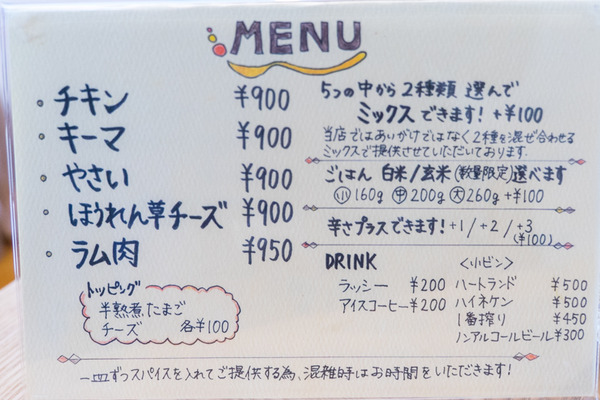 MENU
チキン ¥900
キーマ ¥900
やさい ¥900
ほうれん草チーズ ¥900
ラム肉 ¥950
トッピング
半熟煮たまご
チーズ 各¥100
5つの中から2種類 選んで
ミックスできます! +¥100
当店ではあいがけではなく2種を混ぜ合わせる
ミックスで提供させていただいております。
ごはん 白米/玄米(数量限定)選べます
小160g 中200g 大260g+¥100
辛さプラスできます!+1/+2/+3
(¥100)
DRINK
ラッシー ¥200
アイスコーヒー ¥200
〈小ビン〉
ハートランド ¥500
ハイネケン ¥500
1番搾り ¥450
ノンアルコールビール ¥300
一皿ずつスパイスを入れてご提供する為、混雑時はお時間をいただきます!